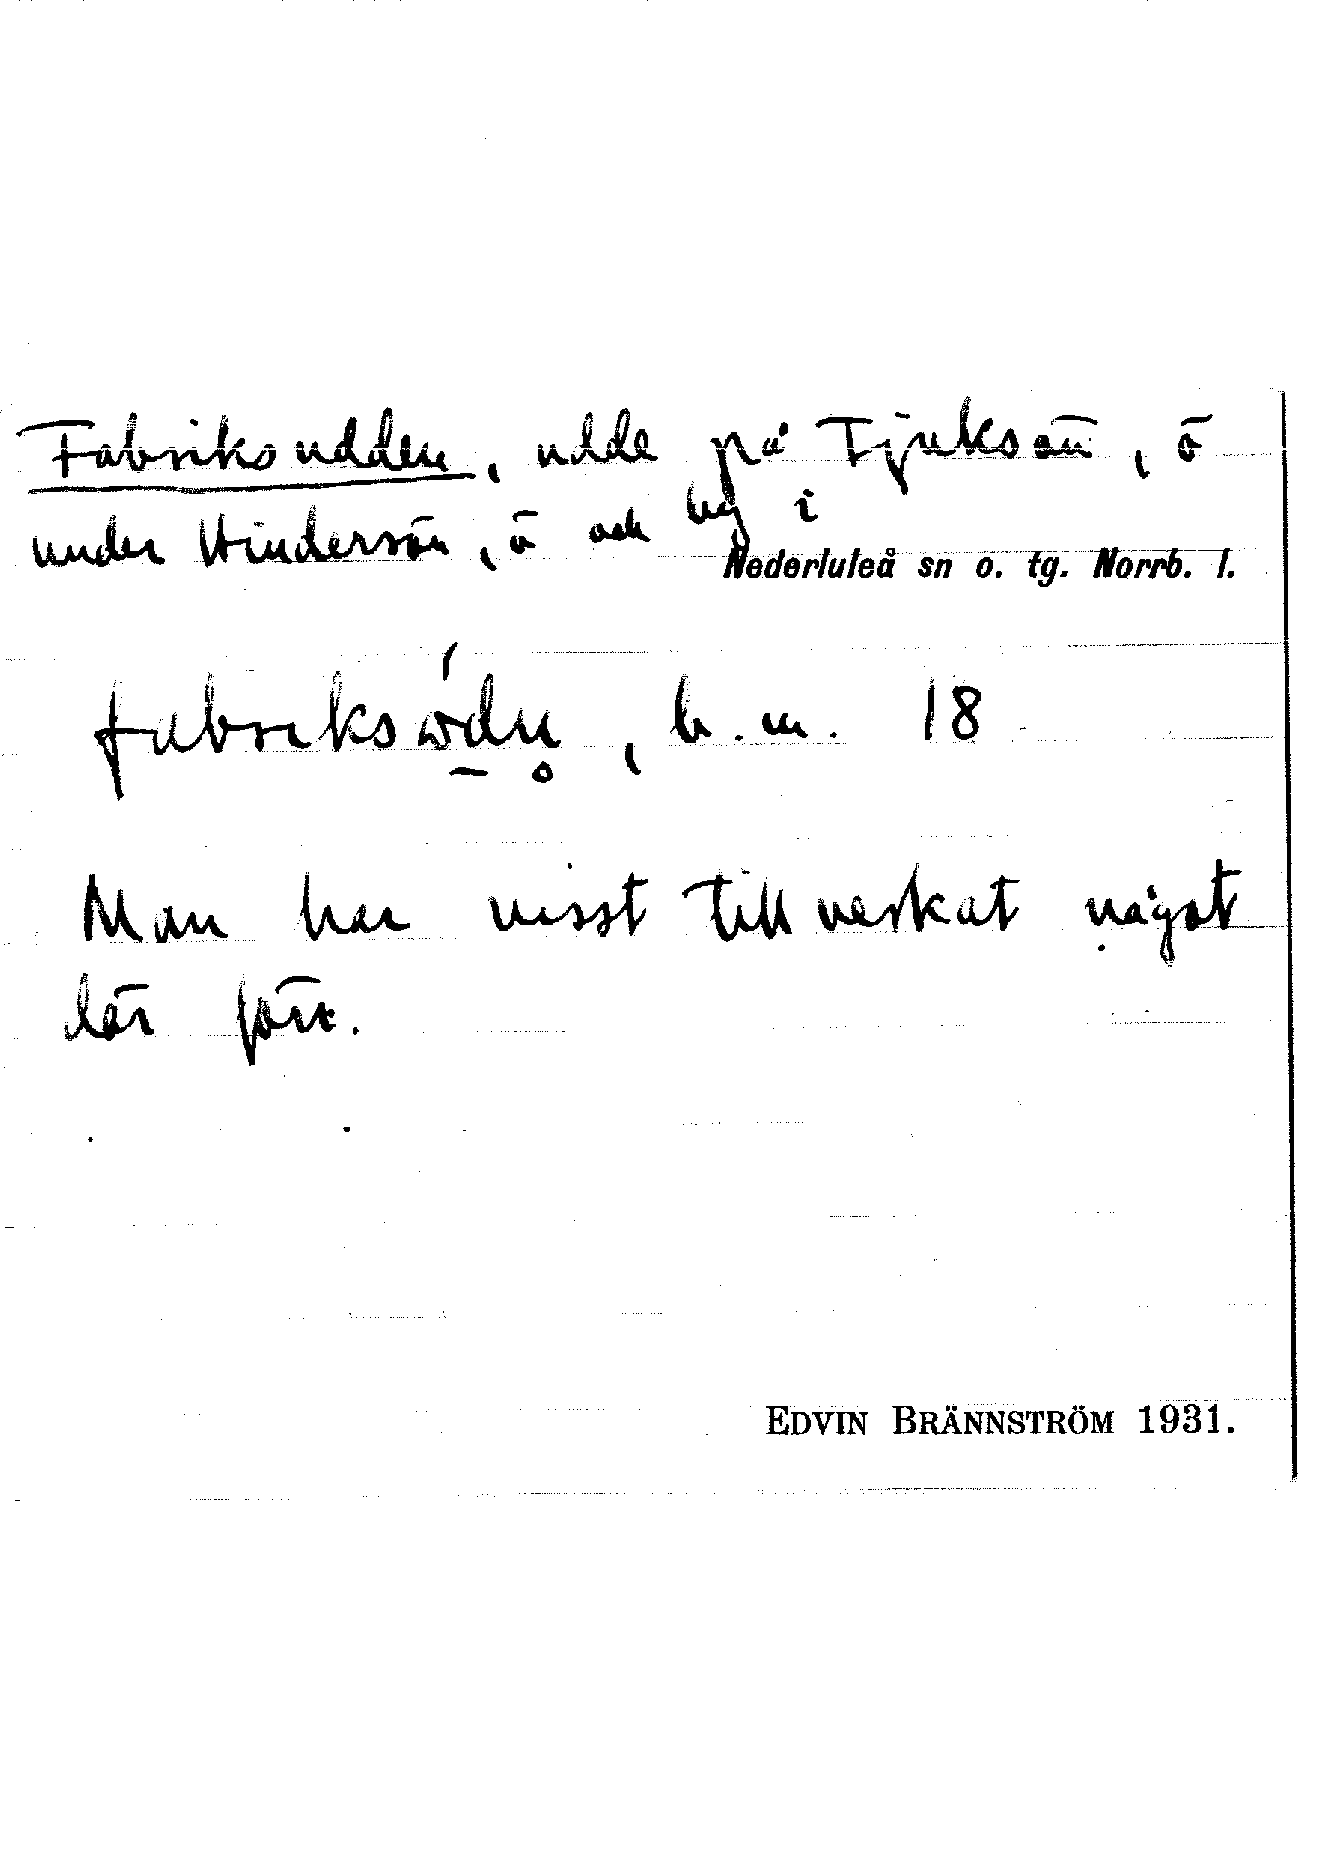 Fabriksudden, udde på Tjuksön, ö
under Hindersön, ö och by i
Nederluleå sn o. tg. Norrb. l.
fabriksώ̱dn̥, b.m. 18
Man har visst tillverkat något
där förr.
EDVIN BRÄNNSTRÖM 1931.